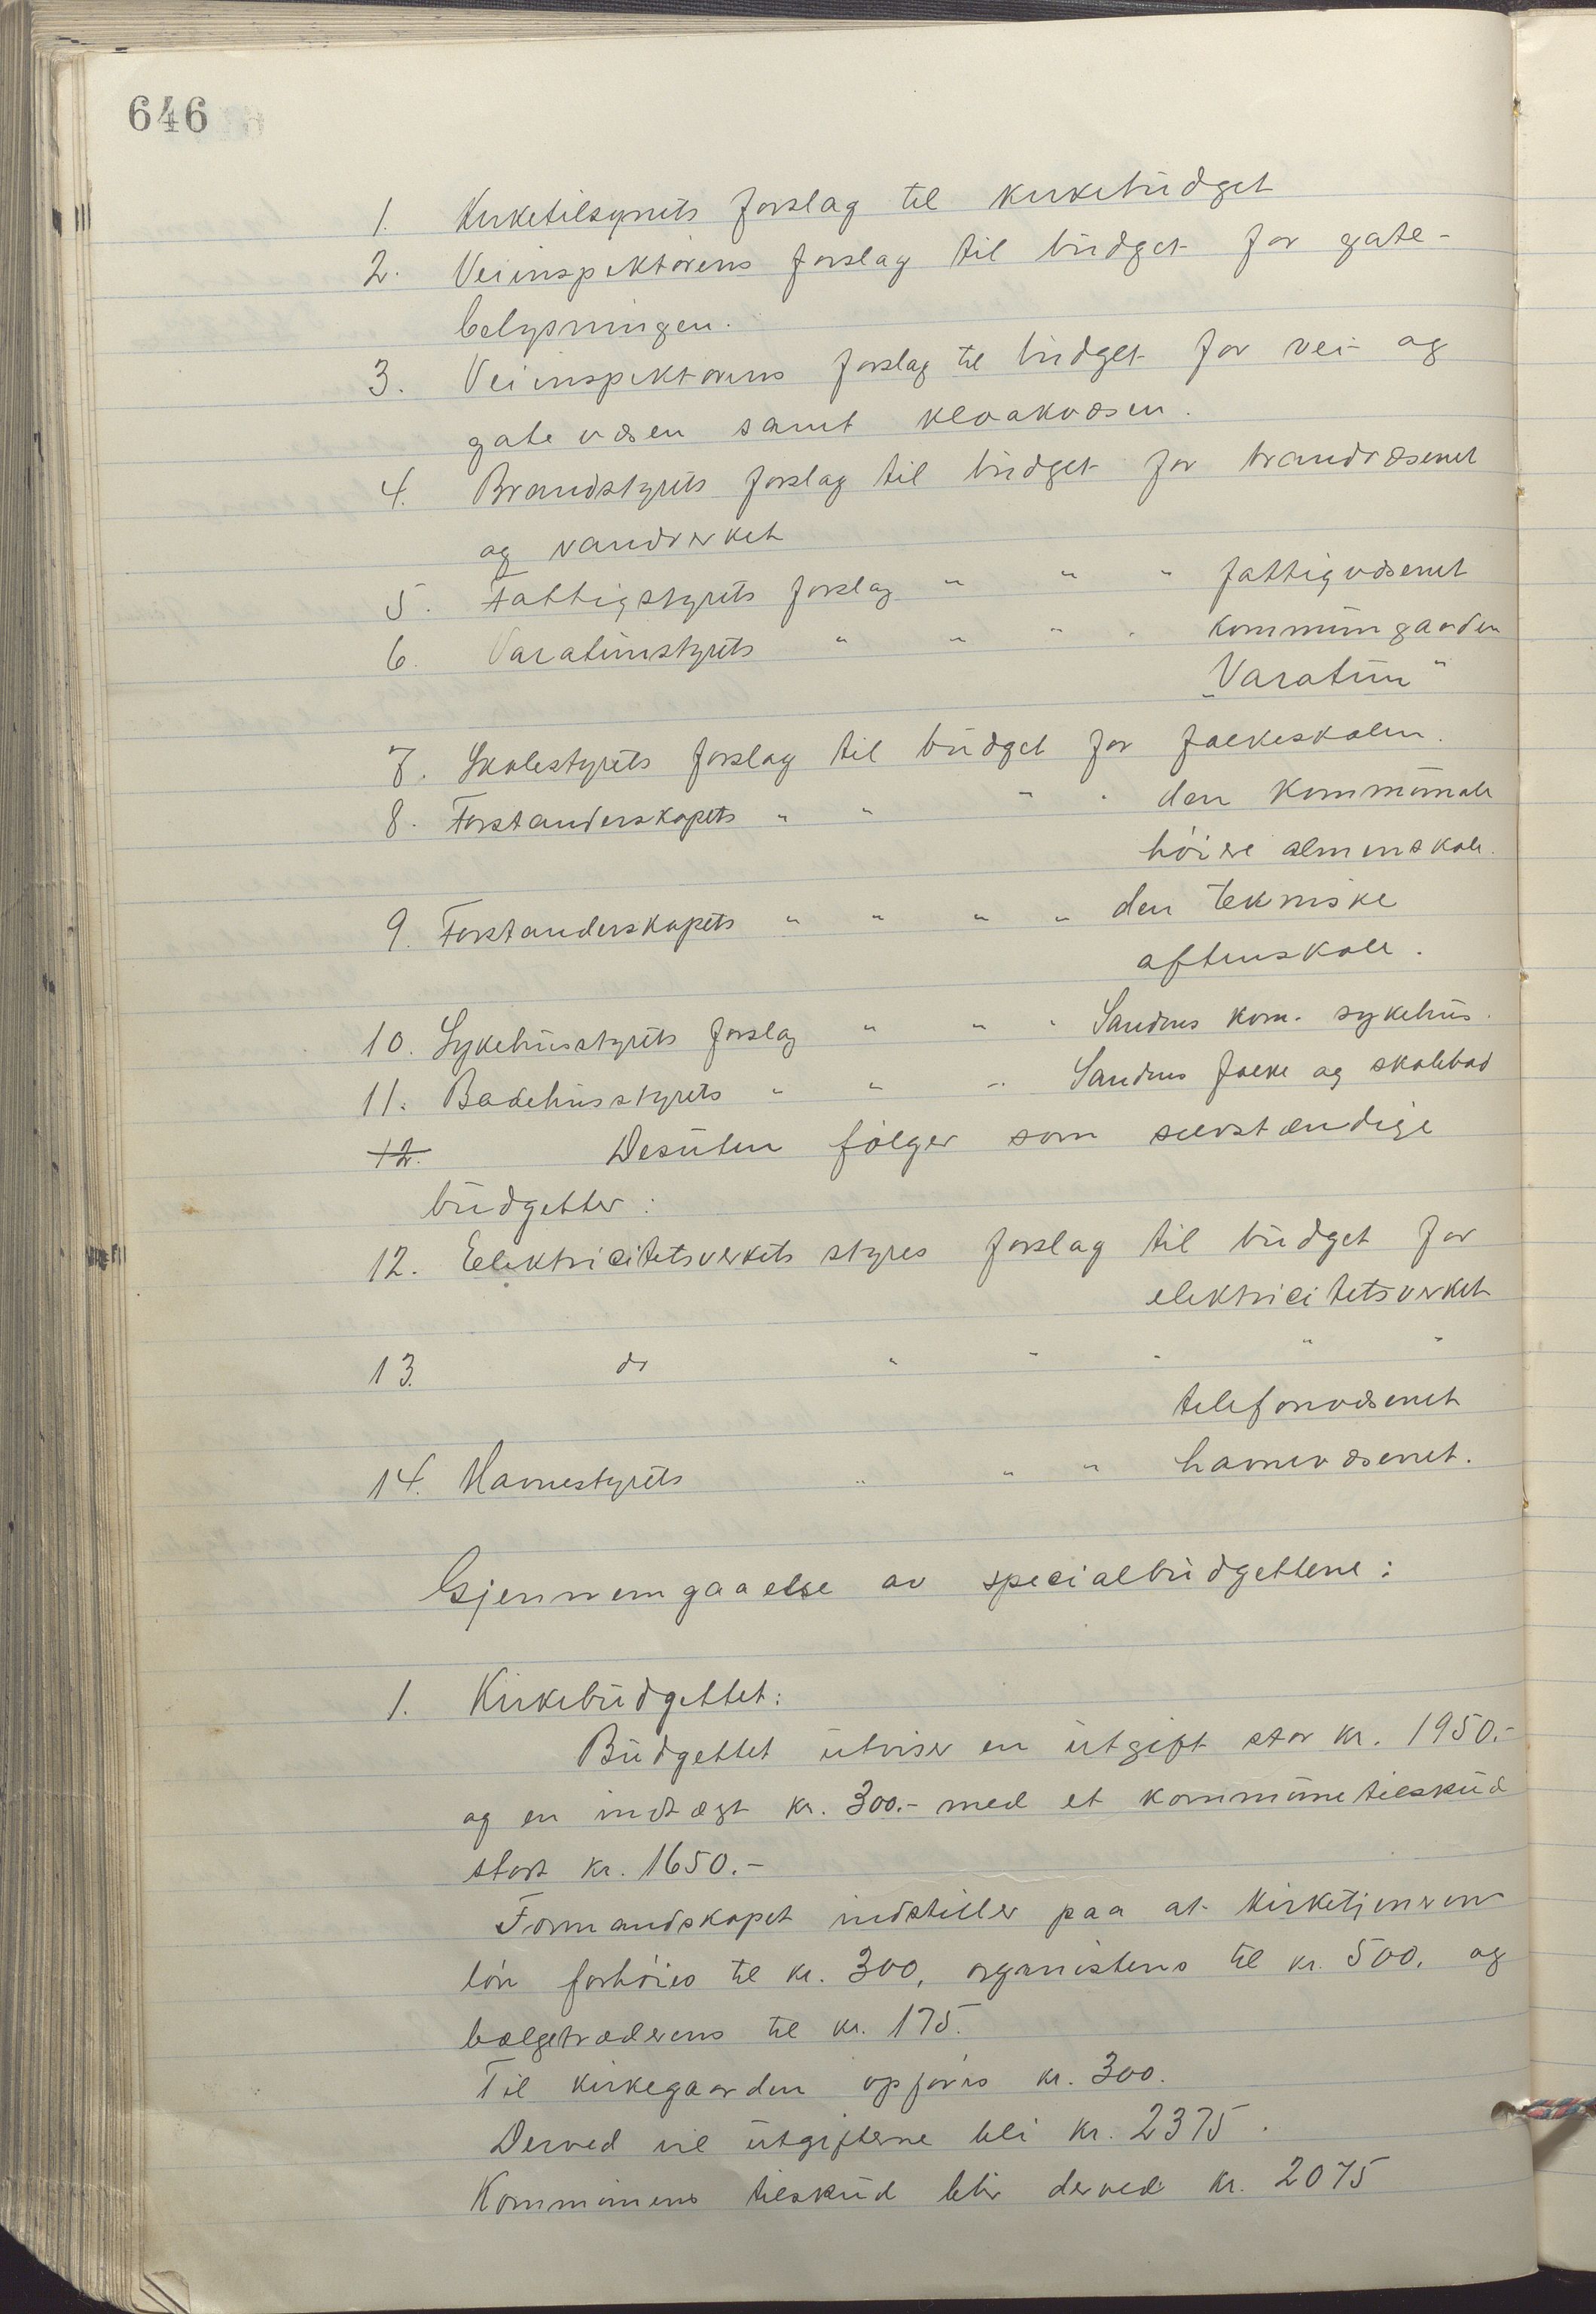 646
1. Kirketilsynets forslag til kirkebudget
2. Veiinspektørens forslag til budget for gate-
belysningen.
3. Veiinspektørens forslag til budget for vei- og
gatevæsen samt kloakvæsen.
4. Brandstyrets forslag til budget for brandvæsenet
og vandverket
5. Fattigstyrets forslag " " " fattigvæsenet
6. Varatunstyrets " " " " kommungaarden
"Varatun"
7. Skolestyrets forslag til budget for folkeskolen.
8. Forstanderskapets " " " " den kommunale
høiere almenskole.
9. Forstanderskapets " " " " den tekniske
aftenskole.
10. Sykehusstyrets forslag " " " Sandnes kom. sykehus.
11. Badehusstyrets " " " Sandnes folke og skolebad
12. Desuten følger som selvstændige
budgetter:
12. Elektricitetsverkets styres forslag til budget for
elektricitetsverket
13. do " " " " "
telefonvæsenet
14. Havnestyrets " " " havnevæsenet.
Gjennemgaaelse av specialbudgettene:
1. Kirkebudgettet:
Budgettet utviser en utgift stor kr. 1950.-
og en indtægt kr. 300.- med et kommunetilskud
stort kr. 1650.-
Formandskapet indstiller paa at kirketjeneren
løn forhøies til kr. 300, organistens til kr. 500, og
bælgetræderens til kr. 175.
Til kirkegaarden opføres kr. 300.
Derved vil utgifterne bli kr. 2375.
Kommunens tilskud blir derved kr. 2075